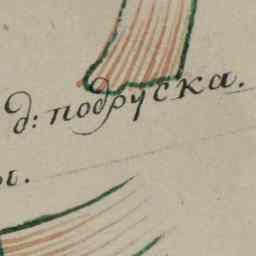 д: подруска.
ы.